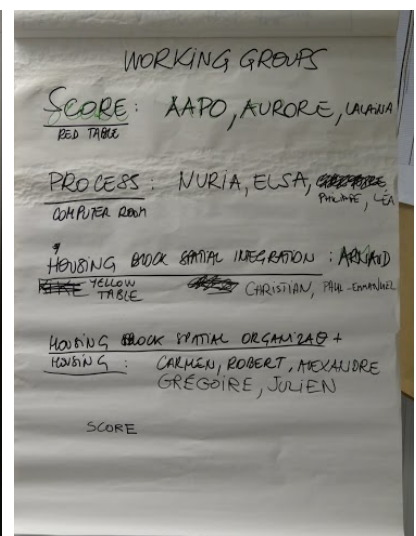 WORKING GROUPS
SCORE: AAPO, AURORE, LALAINA
RED TABLE
PROCESS: NURIA, ELSA,
COMPUTER ROOM PHILIPPE, LÉA
HOUSING BLOCK SPATIAL INTEGRATION: ARNAUD
YELLOW CHRISTIAN, PAUL-EMMANUEL
TABLE
HOUSING BLOCK SPATIAL +
HOUSING: CARMEN, ROBERT, ALEXANDRE
GRÉGOIRE, JULIEN
SCORE